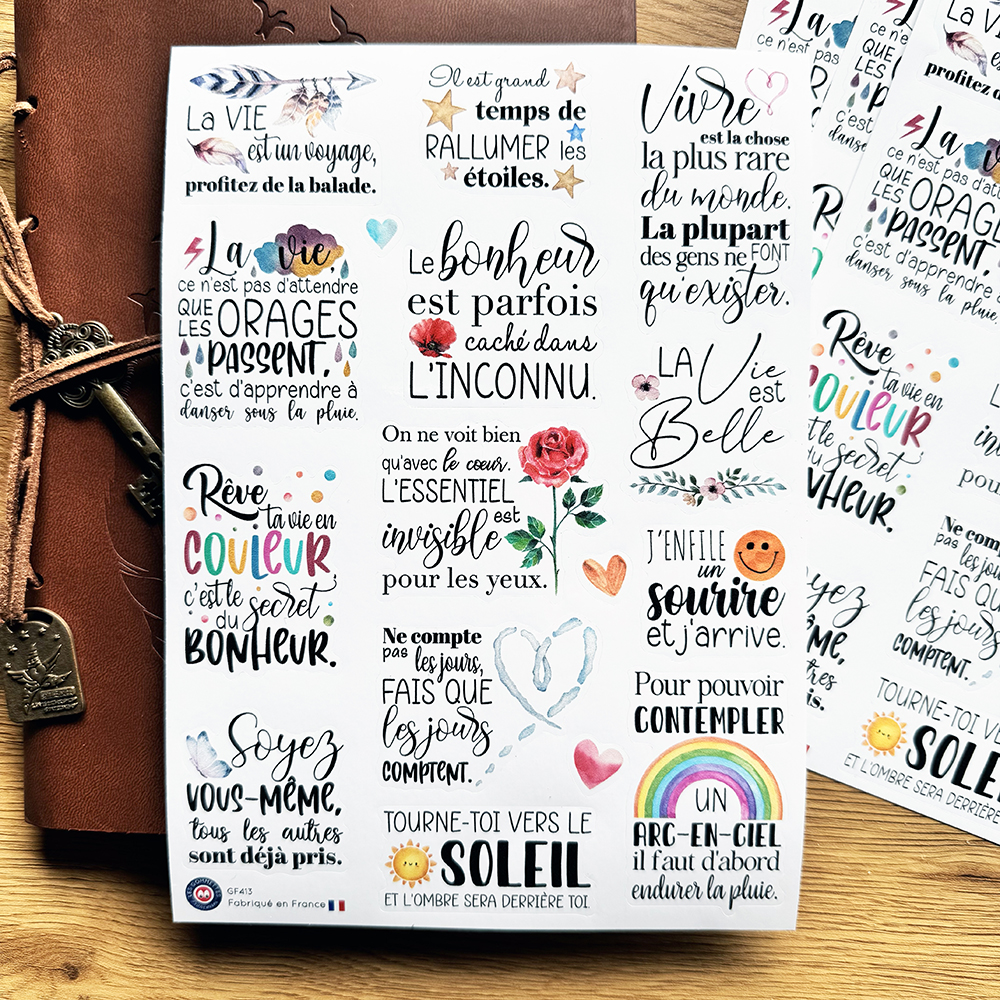 La VIE
est un voyage,
profitez de la balade.
La vie,
ce n'est pas d'attendre
QUE
LES ORAGES
PASSENT,
c'est d'apprendre à
danser sous la pluie.
Rêve
ta vie en
COULEUR
c'est le secret
du
BONHEUR.
Soyez
VOUS-MÊME,
tous les autres
sont déjà pris.
GF413
Fabriqué en France
Il est grand
temps de
RALLUMER les
étoiles.
Le bonheur
est parfois
caché dans
L'INCONNU.
On ne voit bien
qu'avec le cœur.
L'ESSENTIEL
est
invisible
pour les yeux.
Ne compte
pas les jours,
FAIS QUE
les jours
COMPTENT.
TOURNE-TOI VERS LE
SOLEIL
ET L'OMBRE SERA DERRIÈRE TOI.
Vivre
est la chose
la plus rare
du monde.
La plupart
des gens ne FONT
qu'exister.
LA Vie
est
Belle
J'ENFILE
un
sourire
et j'arrive.
Pour pouvoir
CONTEMPLER
UN
ARC-EN-CIEL
il faut d'abord
endurer la pluie.
La
ce n'est pas
QUE
LES
La VIE
profitez de
La
ce n'est pas d'atte
QUE
LES ORAG
PASSENT,
c'est d'apprendre
danser sous la pluie.
Rêve
ta vie en
COULEUR
le secret
du
NHEUR.
Ne com
pas les jou
FAIS QU
les jours
COMPTENT.
TOURNE-TOI VE
SOLE
ET L'OMBRE SERA DERRIÈRE